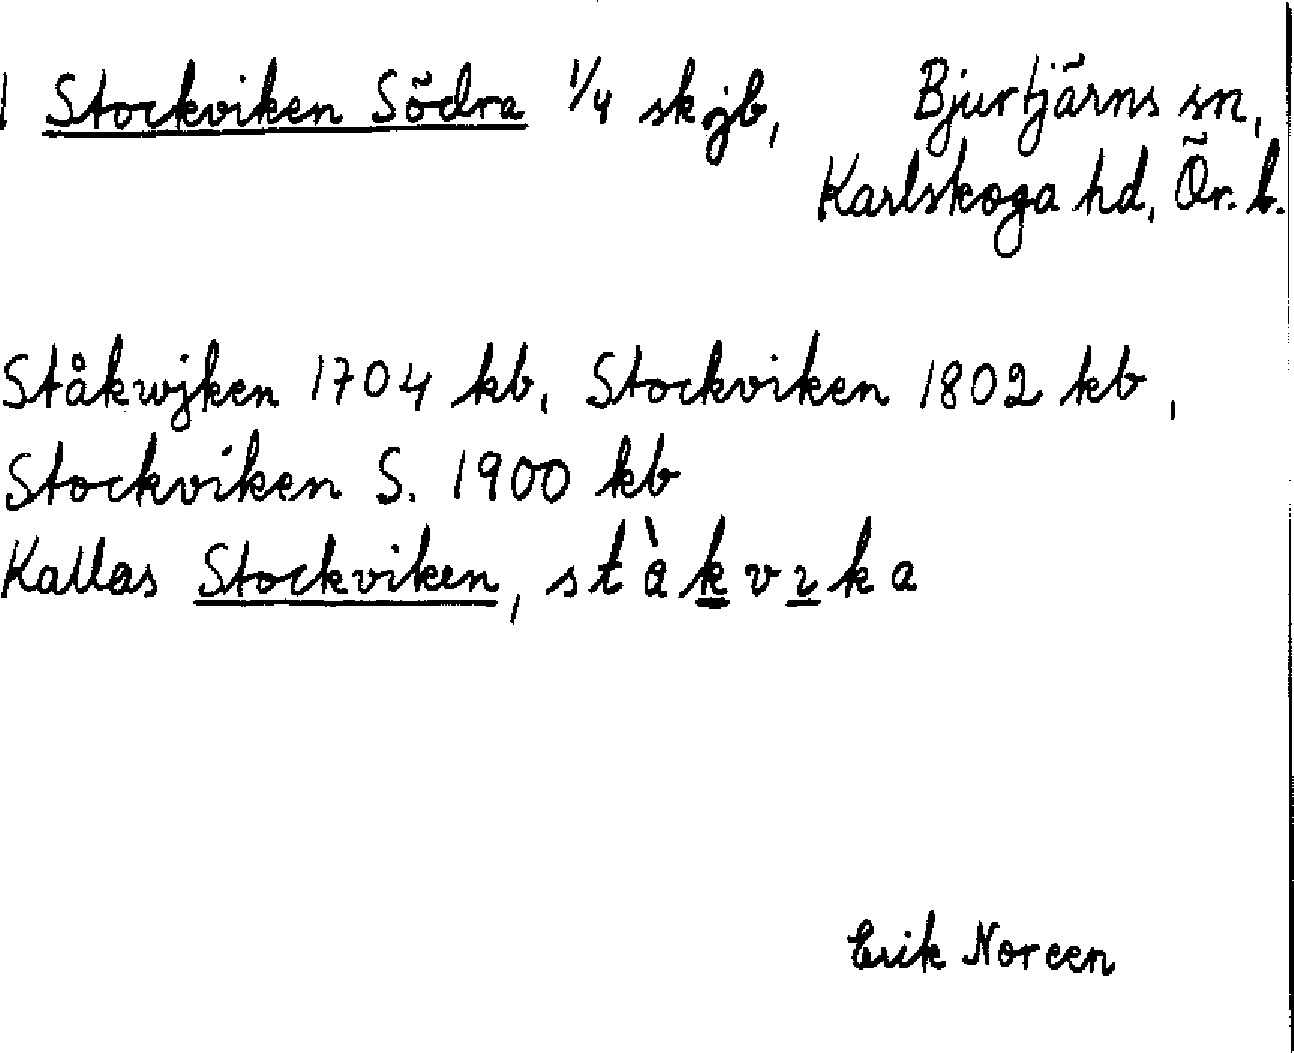 1 Stockviken Södra 1/4 skjb, Bjurtjärns sn,
Karlskoga hd, Ör. l.
Ståkwjken 1704 kb, Stockviken 1802 kb,
Stockviken S. 1900 kb
Kallas Stockviken, stàkvıka
Erik Noreen